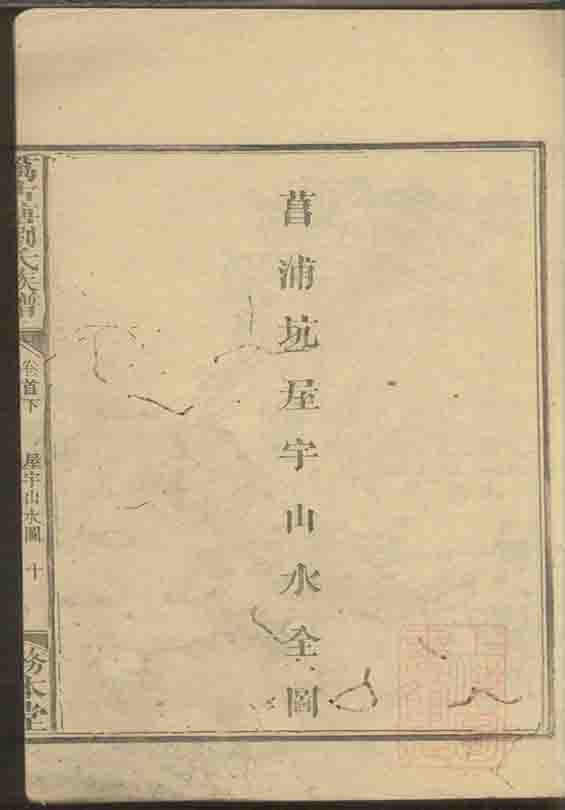 菖浦坑屋宇山水全圖
劉氏族譜
卷首下
屋宇山水圖
十
務本堂